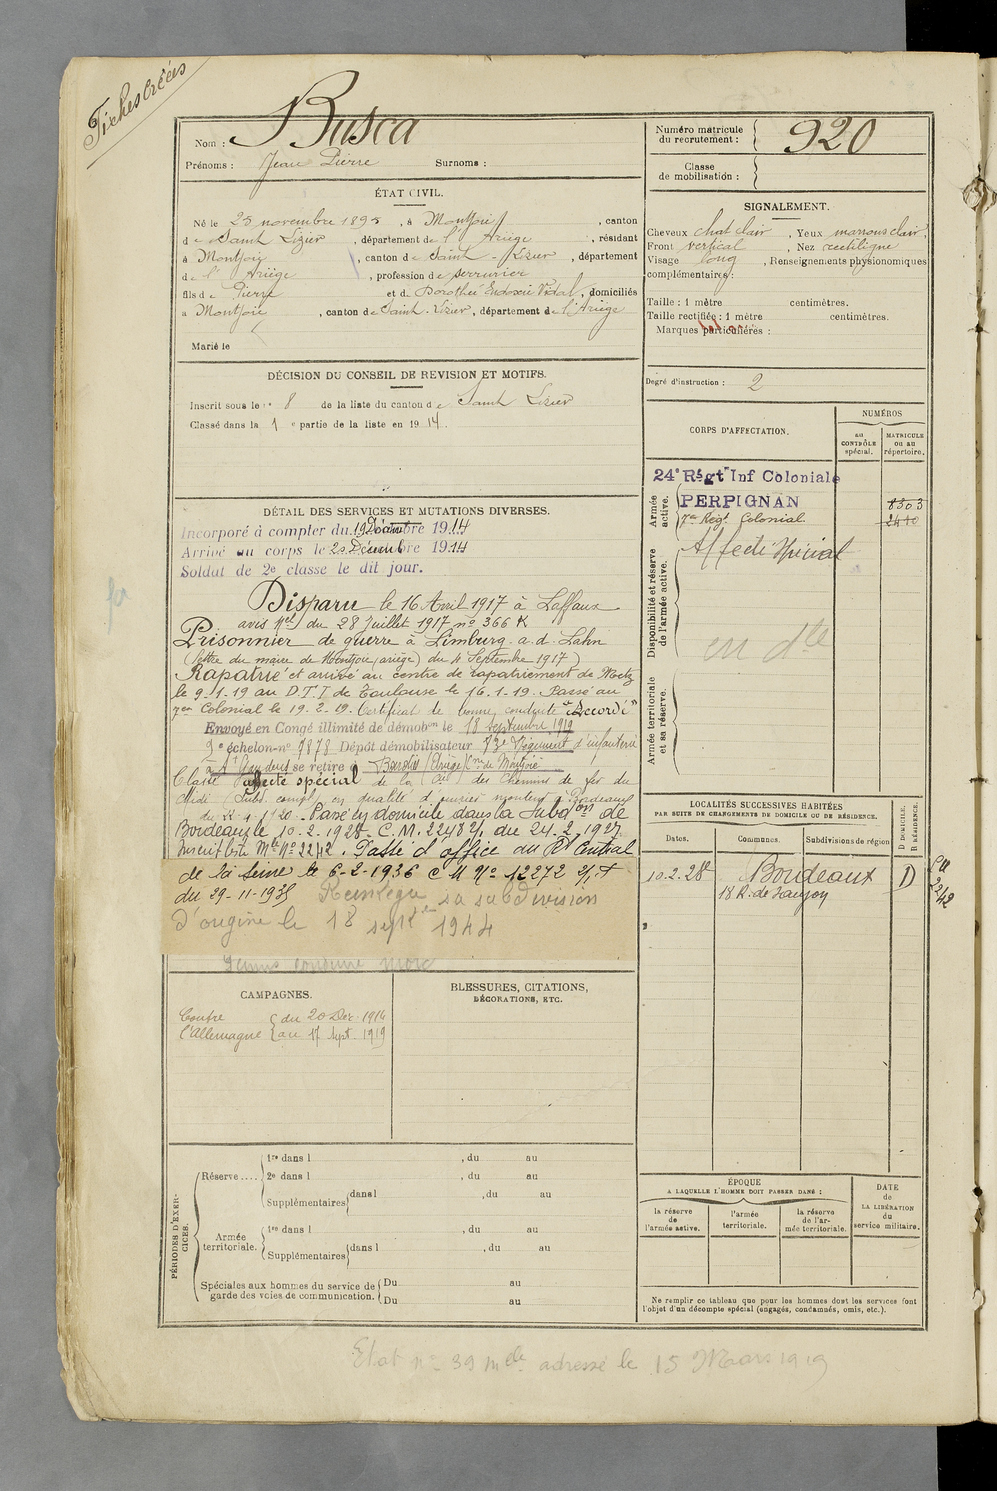 Fiches créées
Nom : Busca
Prénoms : Jean Pierre Surnoms :
Numéro matricule du recrutement : 920
Classe de mobilisation :
ÉTAT CIVIL.
Né le 25 novembre 1895, à Montjoie, canton
de Saint Lizier, département de l'Ariège, résidant
à Montjoie, canton de Saint-Lizier, département
de l'Ariège, profession de serrurier
fils de Pierre et de Dorothée Endoxie Vidal, domiciliés
à Montjoie, canton de Saint-Lizier, département de l'Ariège
Marié le
SIGNALEMENT.
Cheveux chat clair, Yeux marrons clair,
Front vertical, Nez rectiligne
Visage long, Renseignements physionomiques
complémentaires :
Taille : 1 mètre centimètres.
Taille rectifiée : 1 mètre centimètres.
Marques particulières :
Degré d'instruction : 2
DÉCISION DU CONSEIL DE REVISION ET MOTIFS.
Inscrit sous le n° 8 de la liste du canton de Saint Lizier
Classé dans la 1e partie de la liste en 1914.
CORPS D'AFFECTATION.
NUMÉROS
au CONTRÔLE spécial.
MATRICULE ou au répertoire.
Armée active.
24e Régt Inf Coloniale
PERPIGNAN 8303
7e Régt Colonial 2410
Disponibilité et réserve de l'armée active.
Affecté Spécial
en dte
Armée territoriale et sa réserve.
DÉTAIL DES SERVICES ET MUTATIONS DIVERSES.
Incorporé à compter du 19 Décembre 1914
Arrivé au corps le 20 Décembre 1914
Soldat de 2e classe le dit jour.
Disparu le 16 Avril 1917 à Laffaux
avis Mel du 28 Juillet 1917 no 366 K
Prisonnier de guerre à Limburg a. d. Lahn
(lettre du maire de Montjoie (ariège) du 4 Septembre 1917)
Rapatrié et arrivé au centre de rapatriement de Metz
le 9-1-19 au D.T.I de Toulouse le 16-1-19. Passé au
7e Colonial le 19-2-19. Certificat de bonne conduite "Accordé"
Envoyé en Congé illimité de démobon le 18 septembre 1919
2e échelon no 7878 Dépôt démobilisateur 73e Régiment d'infanterie
se retire à (Ariège) Cne de Montjoie
Classé affecté spécial de la Cie des Chemins de fer du
Midi (Subd. compl) en qualité d'ouvrier monteur à Bordeaux
du Passé en domicile dans la Subdon de
Bordeaux le 10-2-1928. C.M. 22482/1 du 24-2-1928
Inscrit liste Mle No 2242. Passé d'office au Rt Central
de la Seine le 6-2-1936 C M No 12272
du 29-11-1935 Réintègre sa subdivision
D'origine le 18 septe 1944
LOCALITÉS SUCCESSIVES HABITÉES
PAR SUITE DE CHANGEMENTS DE DOMICILE OU DE RÉSIDENCE.
Dates. Communes. Subdivisions de région D DOMICILE. R RÉSIDENCE.
10.2.28 Bordeaux D
18 R. de Saujon
2242
CAMPAGNES.
Contre l'Allemagne { du 20 Déc. 1914
au 17 Sept. 1919
BLESSURES, CITATIONS,
DÉCORATIONS, ETC.
PÉRIODES D'EXERCICES.
Réserve.... 1re dans l , du au
2e dans l , du au
Supplémentaires dans l , du au
Armée territoriale. 1re dans l , du au
Supplémentaires dans l , du au
Spéciales aux hommes du service de garde des voies de communication. Du au
Du au
ÉPOQUE
A LAQUELLE L'HOMME DOIT PASSER DANS :
la réserve de l'armée active.
l'armée territoriale.
la réserve de l'armée territoriale.
DATE de LA LIBÉRATION du service militaire.
Ne remplir ce tableau que pour les hommes dont les services font
l'objet d'un décompte spécial (engagés, condamnés, omis, etc.).
Etat no 39 mle adressé le 15 Mars 1919